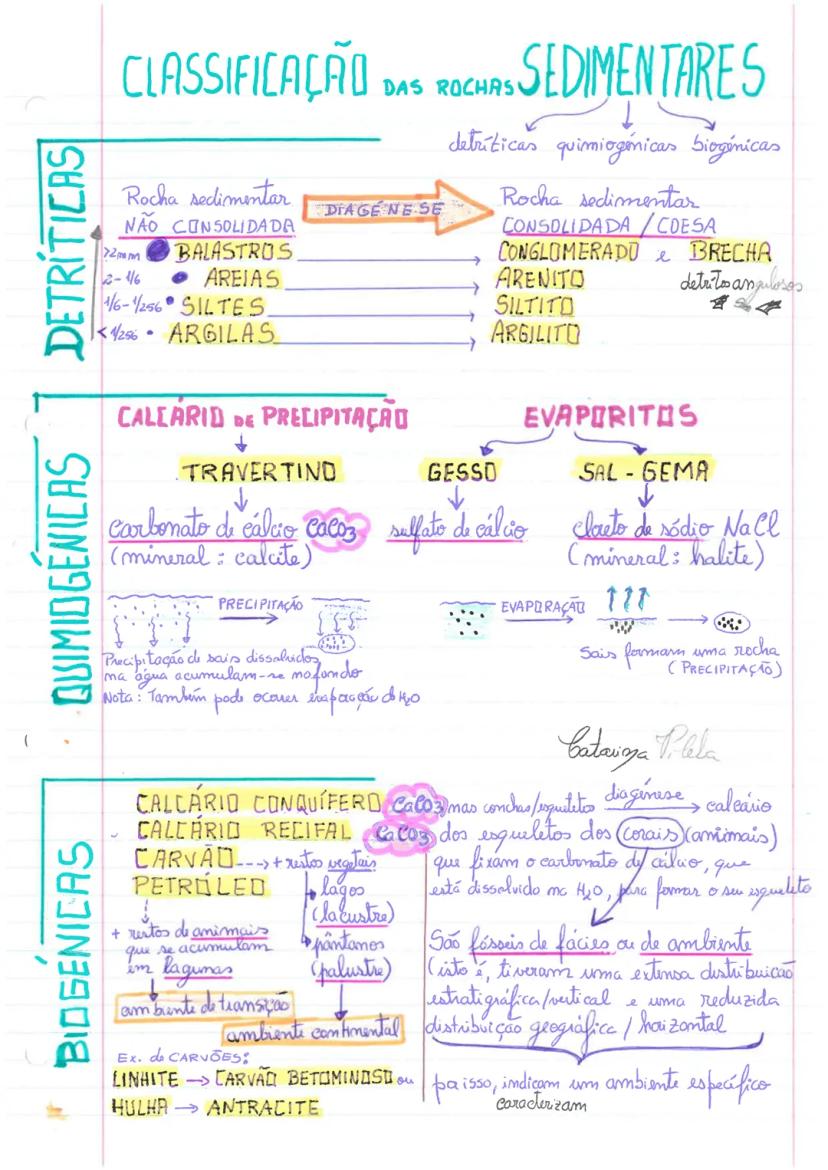 CLASSIFICAÇÃO DAS ROCHAS SEDIMENTARES
detríticas quimiogénicas biogénicas
DETRÍTICAS
Rocha sedimentar
NÃO CONSOLIDADA
DIAGÉNESE
Rocha sedimentar
CONSOLIDADA / COESA
>2mm BALASTROS CONGLOMERADO e BRECHA
2-1/6 AREIAS ARENITO detritos angulosos
1/6-1/256 SILTES SILTITO
<1/256 ARGILAS ARGILITO
QUIMIOGÉNICAS
CALCÁRIO DE PRECIPITAÇÃO EVAPORITOS
TRAVERTINO GESSO SAL-GEMA
carbonato de cálcio CaCO3 sulfato de cálcio cloreto de sódio NaCl
(mineral: calcite) (mineral: halite)
PRECIPITAÇÃO EVAPORAÇÃO
Precipitação de sais dissolvidos
na água acumulam-se no fundo
Nota: Também pode ocorrer evaporação de H2O
Sais formam uma rocha
(PRECIPITAÇÃO)
Catarina
BIOGÉNICAS
CALCÁRIO CONQUÍFERO CaCO3 nas conchas/esqueletos diagénese calcário
CALCÁRIO RECIFAL CaCO3 dos esqueletos dos corais (animais)
que fixam o carbonato de cálcio, que
está dissolvido na H2O, para formar o seu esqueleto
CARVÃO + restos vegetais
PETRÓLEO
lagos
(lacustre)
pântanos
(palustre)
+ restos de animais
que se acumulam
em lagunas
ambiente de transição
ambiente continental
São fósseis de fácies ou de ambiente
(isto é, tiveram uma extensa distribuição
estratigráfica/vertical e uma reduzida
distribuição geográfica / horizontal
por isso, indicam um ambiente específico
caracterizam
Ex. de CARVÕES:
LINHITE → CARVÃO BETOMINOSO ou
HULHA → ANTRACITE